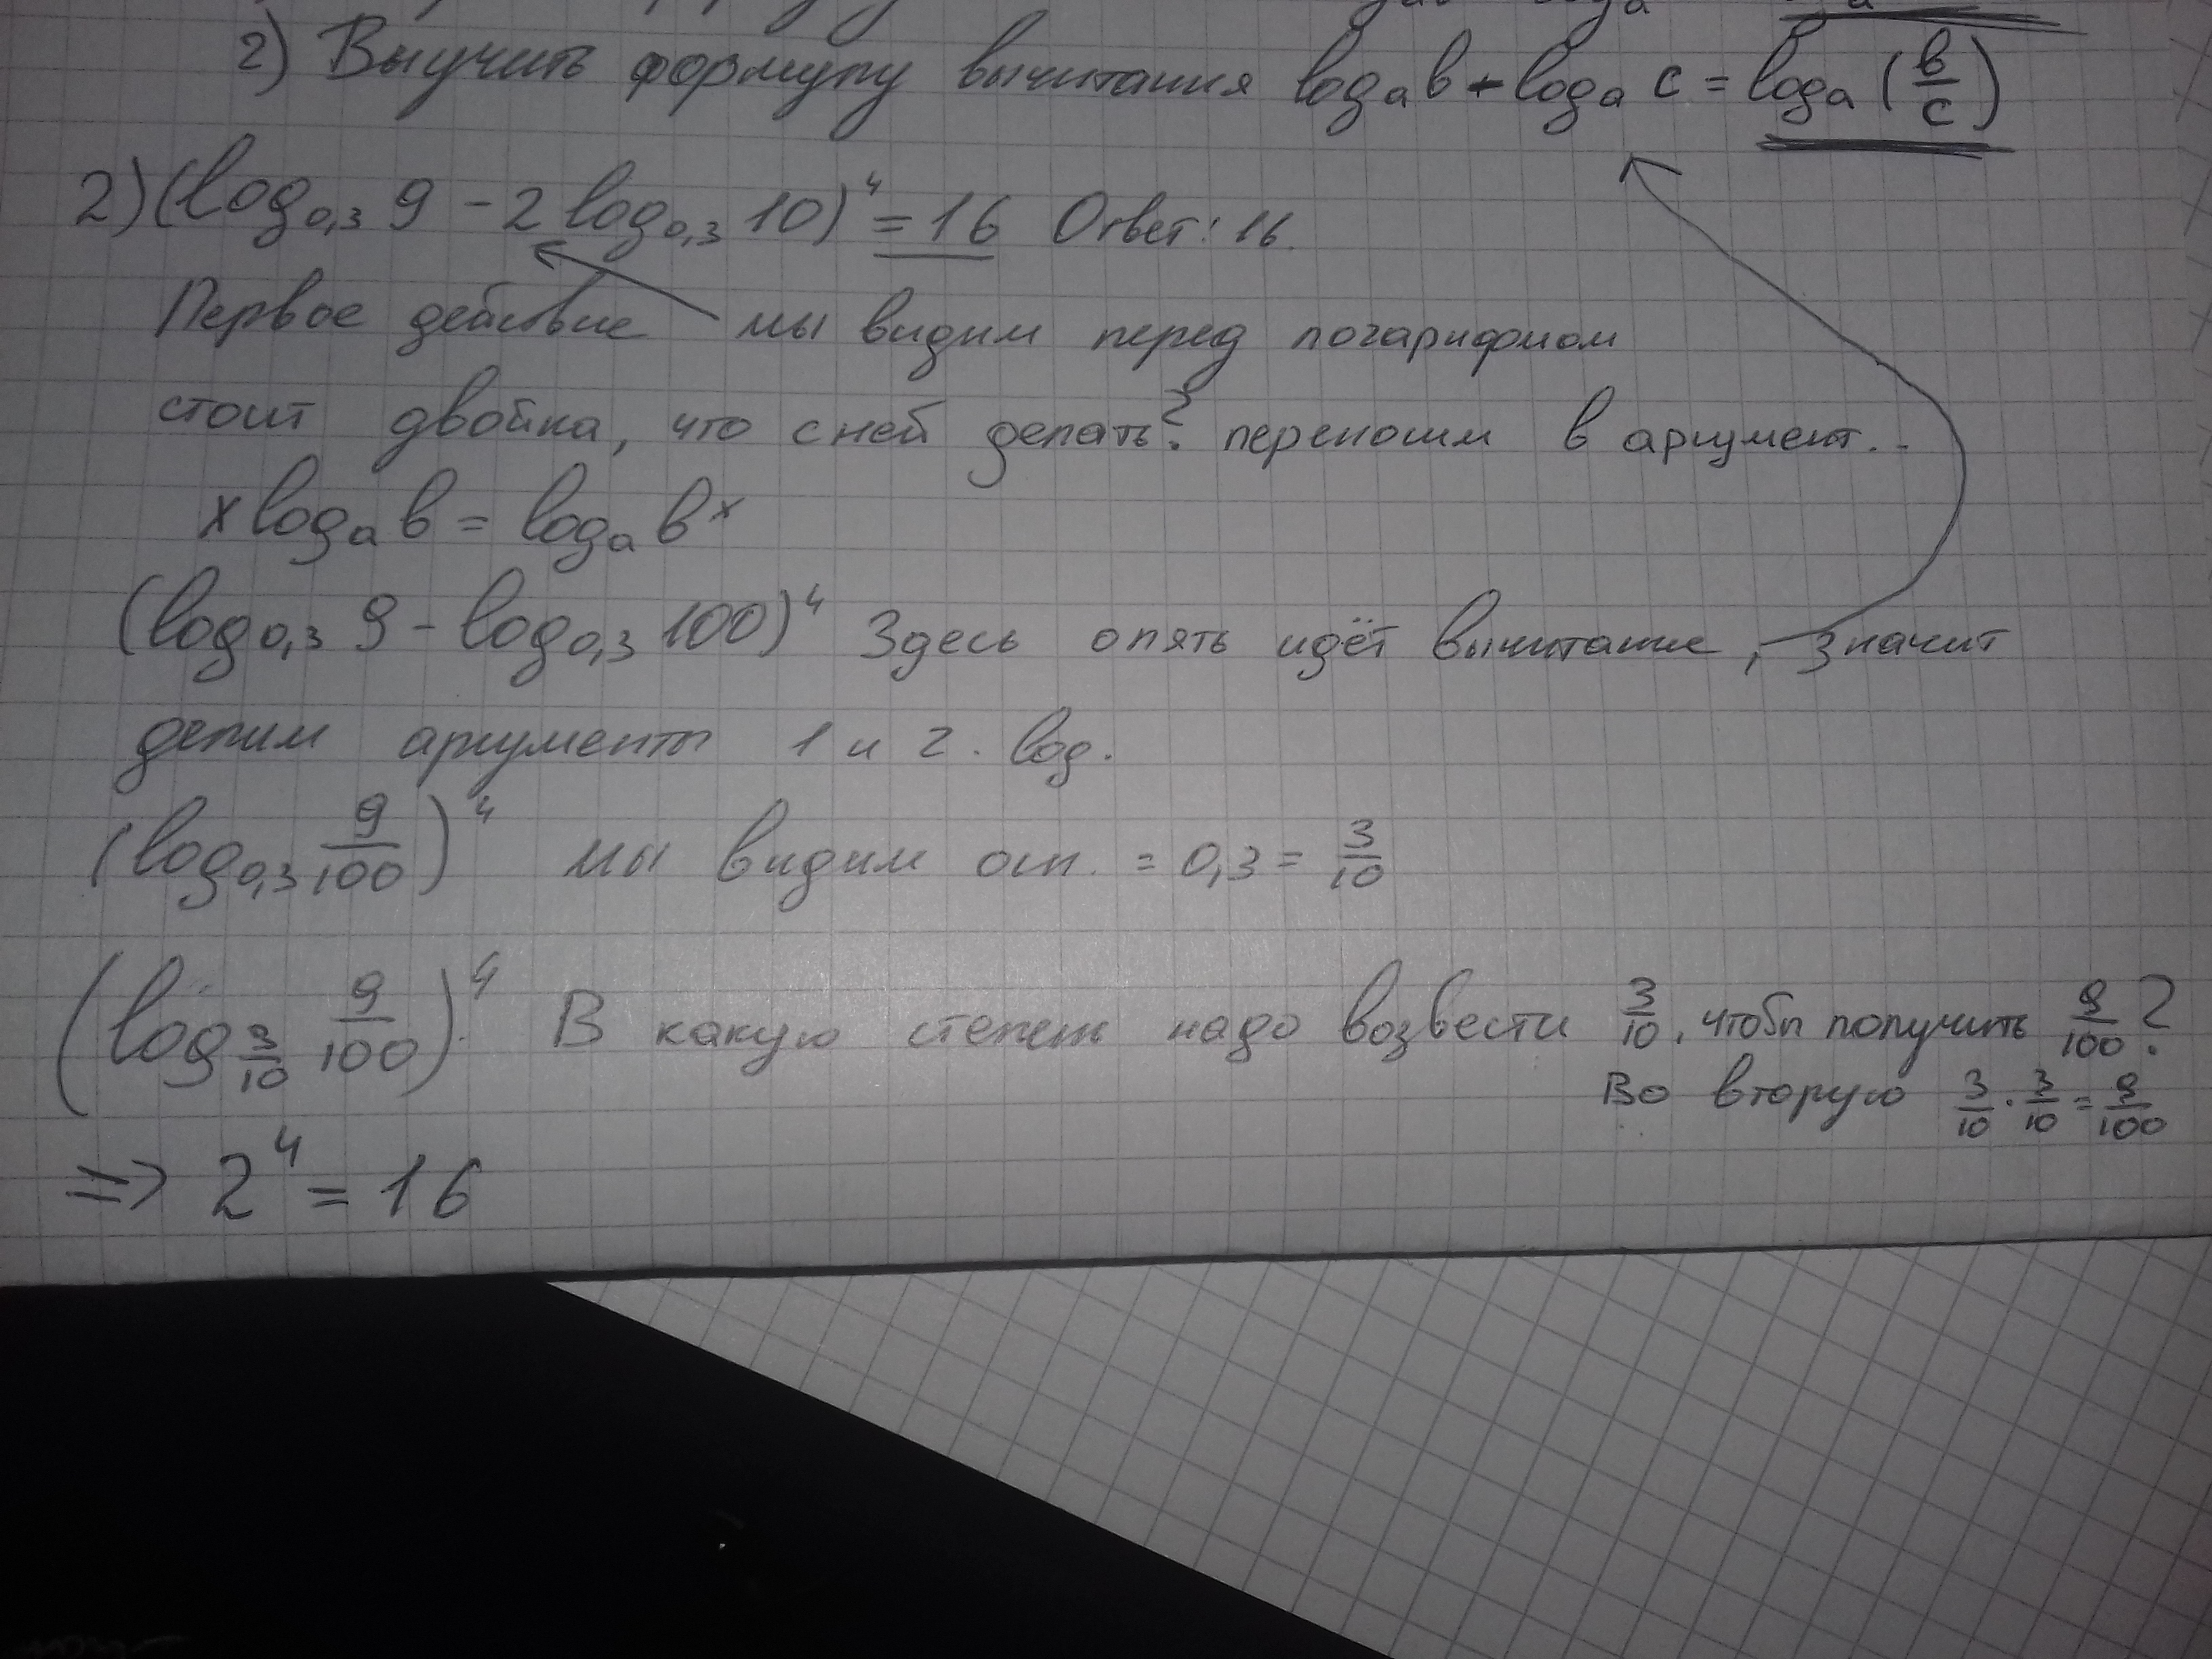 2) Выучить формулу вычитания log_a b - log_a c = log_a (b/c)
2) (log_0,3 9 - 2 log_0,3 10)^4 = 16 Ответ: 16.
Первое действие мы видим перед логарифмом
стоит двойка, что с ней делать? переносим в аргумент..
x log_a b = log_a b^x
(log_0,3 9 - log_0,3 100)^4 Здесь опять идёт вычитание, значит
делим аргументы 1 и 2. log.
(log_0,3 9/100)^4 мы видим осн. = 0,3 = 3/10
(log_3/10 9/100)^4. В какую степень надо возвести 3/10, чтобы получить 9/100?
Во вторую 3/10 · 3/10 = 9/100
=> 2^4 = 16